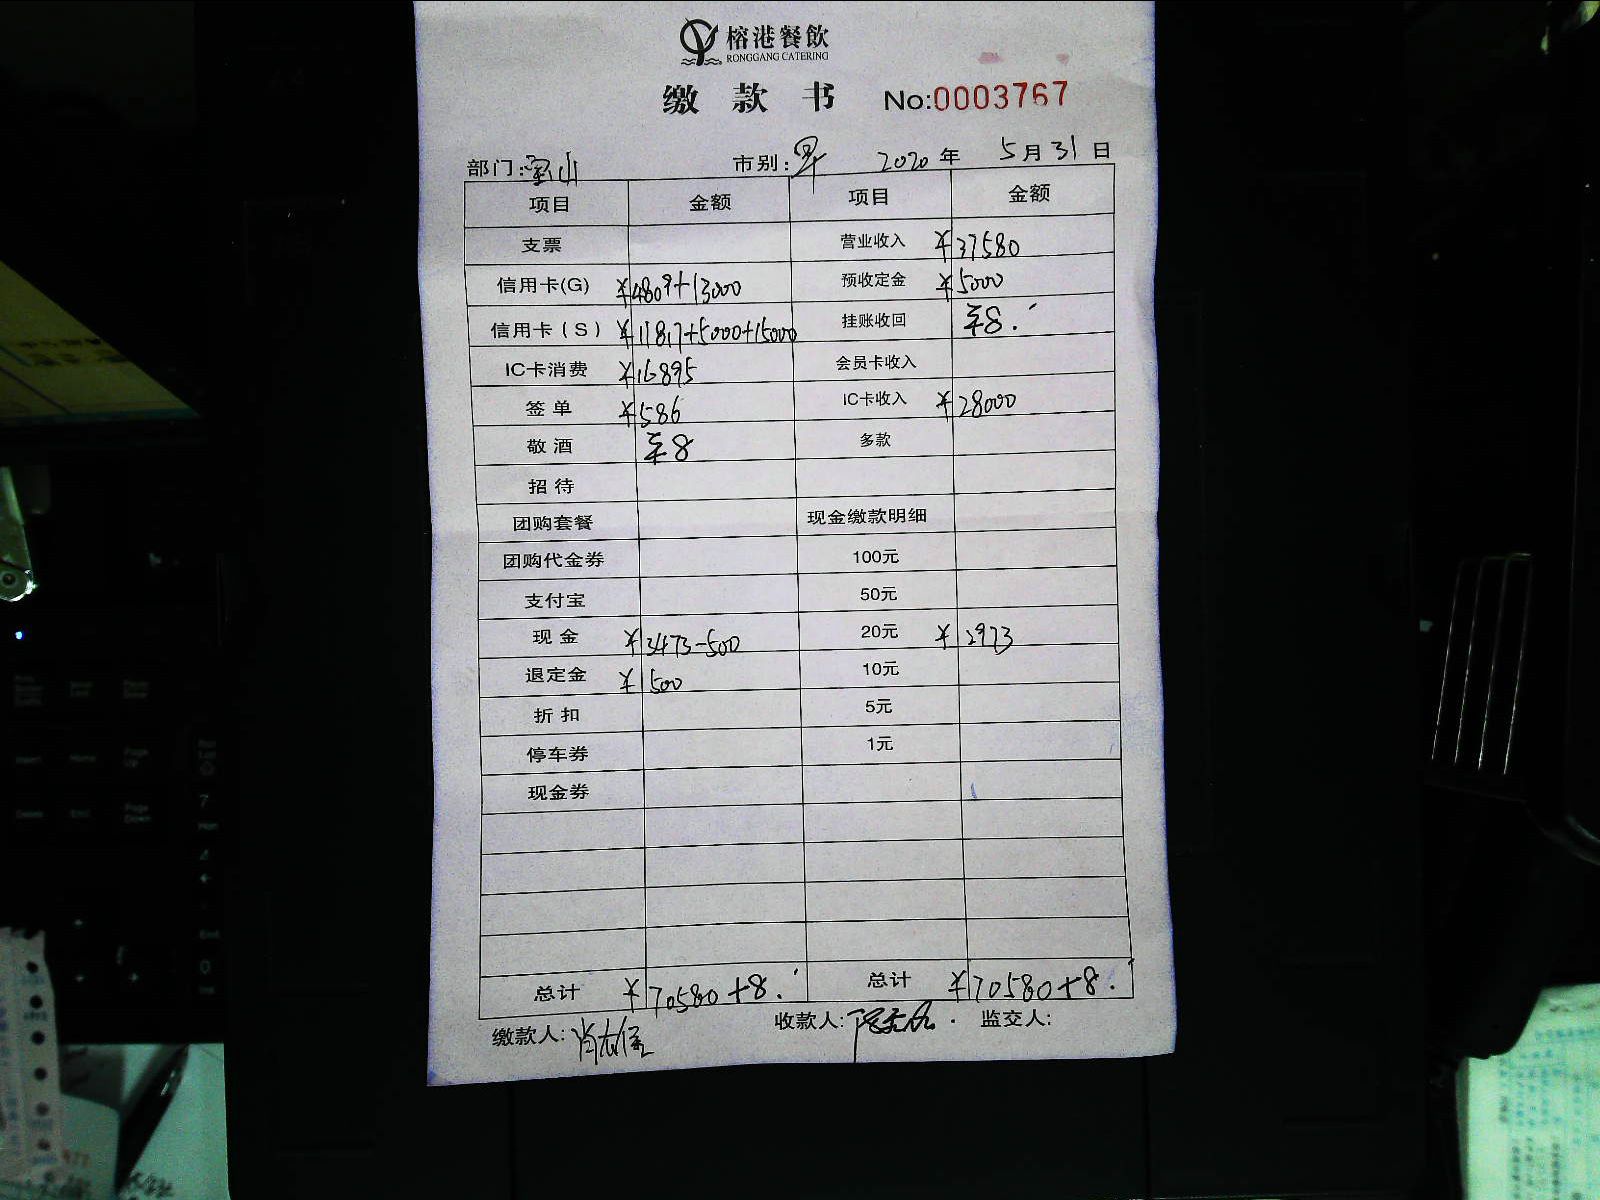 榕港餐飲
RONGGANG CATERING
缴款书 No:0003767
部门:宝山 市别: 2020年 5月31日
项目 金额 项目 金额
支票 营业收入 ¥37580
信用卡(G) ¥4809+13000 预收定金 ¥5000
信用卡(S) ¥11817+5000+15000 挂账收回 ¥8.
IC卡消费 ¥16895 会员卡收入
签单 ¥586 IC卡收入 ¥28000
敬酒 ¥8 多款
招待
团购套餐 现金缴款明细
团购代金券 100元
支付宝 50元
现金 ¥3473-500 20元 ¥2973
退定金 ¥500 10元
折扣 5元
停车券 1元
现金券
总计 ¥70580+8. 总计 ¥70580+8.
缴款人: 收款人: 监交人: